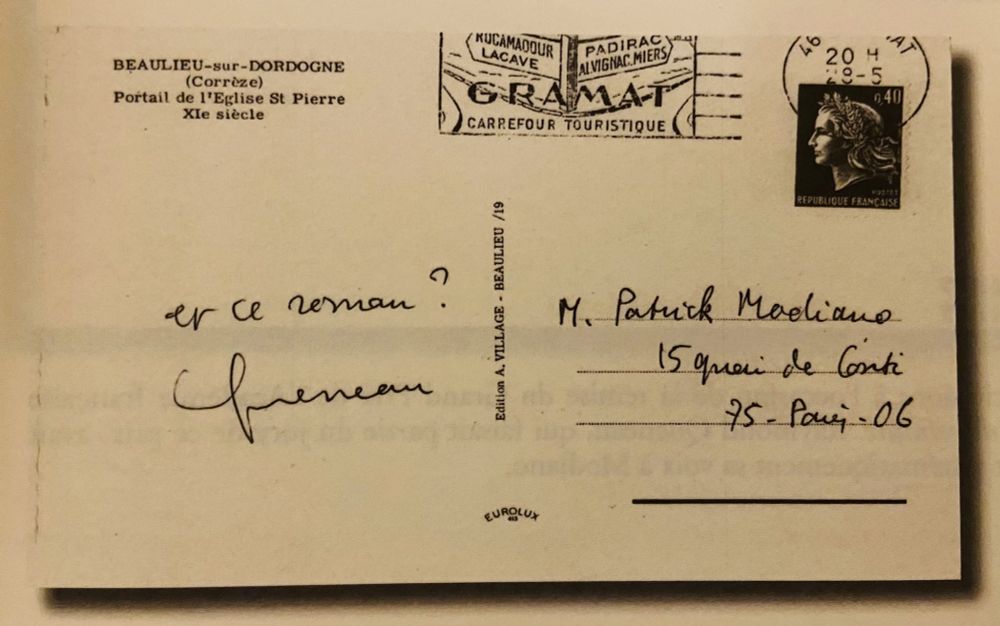 BEAULIEU-sur-DORDOGNE
(Corrèze)
Portail de l'Eglise St Pierre
XIe siècle
ROCAMADOUR
LACAVE
PADIRAC
ALVIGNAC.MIERS
GRAMAT
CARREFOUR TOURISTIQUE
20 H
28-5
0,40
POSTES
REPUBLIQUE FRANÇAISE
et ce roman ?
Queneau
Edition A. VILLAGE - BEAULIEU /19
M. Patrick Modiano
15 quai de Conti
75 - Paris - 06
EUROLUX